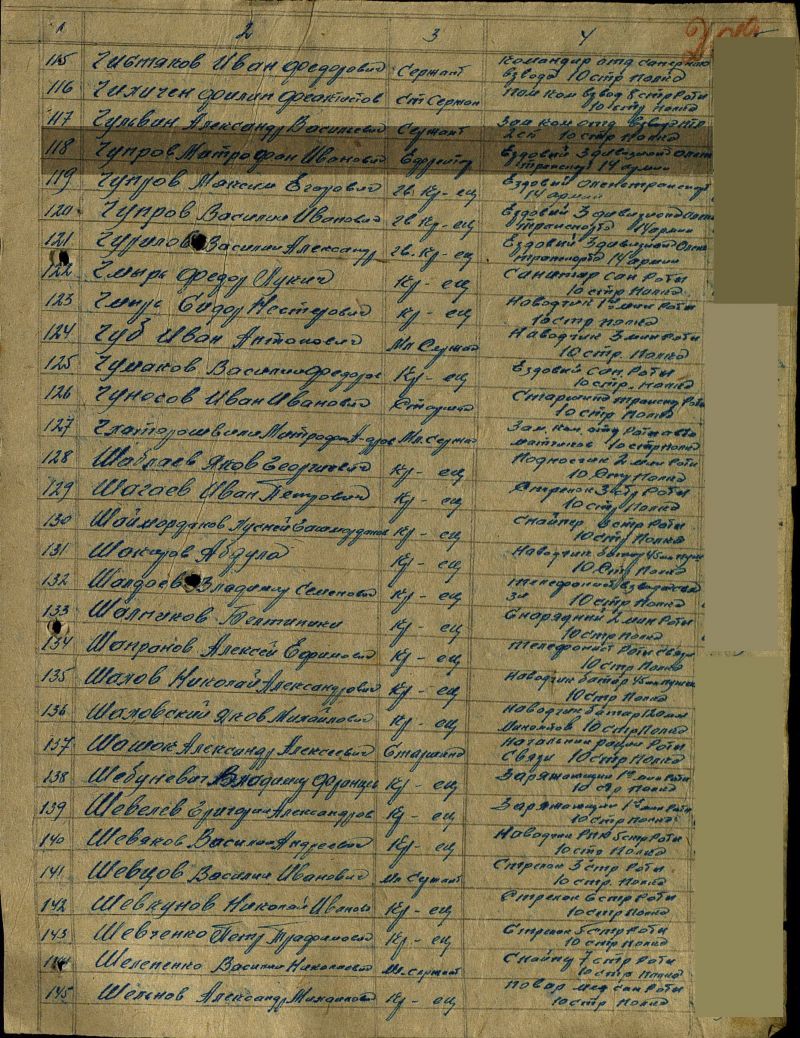 1 2 3 4
115 Чивтаков Иван Федорович Сержант Командир отд саперного
взвода 10 стр Полка
116 Чихичен Филип Феоктистов Ст Сержан Пом Ком взвод 8 стр Роты
10 стр Полка
117 Александр Василиевич Сержант Зам ком отд взвода
10 стр Полка
118 Чупров Митрофан Иванович Ефрейтор Ездовой 3 дивизиона Олен
транспор 14 армии
119 Чупров Максим Егорович гв. Кр-ец Ездовый Олентранспорт
14 армии
120 Чупров Василий Иванович гв Кр-ец Ездовый 3 дивизиона
транспорта 14 армии
121 Чурилов Василий Александр гв. Кр-ец Ездовый 3 дивизион Олен
транспорта 14 армии
122 Чмырь Федор Лукич Кр-ец Санитар сан Роты
10 стр Полка
123 Чмырь Сидор Нестерович Кр-ец Наводчик 1й мин Роты
10 стр Полка
124 Чуб Иван Антонович Мл Сержан Наводчик 3 мин Роты
10 стр. Полка
125 Чумаков Василий Федоров Кр-ец Ездовый сан. Роты
10 стр. Полка
126 Чуносов Иван Иванович Старшина Старшина трансп Роты
10 стр Полка
127 Митрофан Мл. Сержан Зам. Ком. отд Роты авто
матчиков 10 стр Полка
128 Шаблаев Яков Георгиевич Кр-ец Подносчик 2 мин Роты
10 Стр Полка
129 Шагаев Иван Петрович Кр-ец Стрелок 3 стр Роты
10 стр Полка
130 Шаймарданов Кр-ец Снайпер стр Роты
10 стр Полка
131 Шакиров Абдула Кр-ец Наводчик батар 45мм пушек
10 Стр Полка
132 Шалдаев Владимир Семенович Кр-ец телефонист взвода
10 стр Полка
133 Шалпиков Кр-ец Снарядный 2 мин Роты
10 стр Полка
134 Шапранов Алексей Ефимович Кр-ец телефонист Роты связи
10 стр Полка
135 Шахов Николай Александрович Кр-ец Наводчик батар 45мм пушек
10 стр Полка
136 Шаховский Яков Михайлович Кр-ец Наводчик батар 120мм
Минометов 10 стр Полка
137 Шашок Александр Алексеевич Старшина Начальник рации Роты
Связи 10 стр Полка
138 Шебуневич Владимир Францев Кр-ец Заряжающий 1й мин Роты
10 стр Полка
139 Шевелев Григорий Александров Кр-ец Заряжающий 1й мин Роты
10 стр Полка
140 Шевяков Василий Андреевич Кр-ец Наводчик РПД 5 стр Роты
10 стр Полка
141 Шевцов Василий Иванович Мл Сержант Стрелок 3 стр Роты
10 стр. Полка
142 Шевкунов Николай Иванов Кр-ец Стрелок 6 стр Роты
10 стр Полка
143 Шевченко Петр Трафимович Кр-ец Стрелок 5 стр Роты
10 стр Полка
144 Шелепенко Василий Николаевич Мл. Сержант Снайпер 7 стр Роты
10 стр Полка
145 Шельнов Александр Михайлович Кр-ец повар мед сан Роты
10 стр Полка